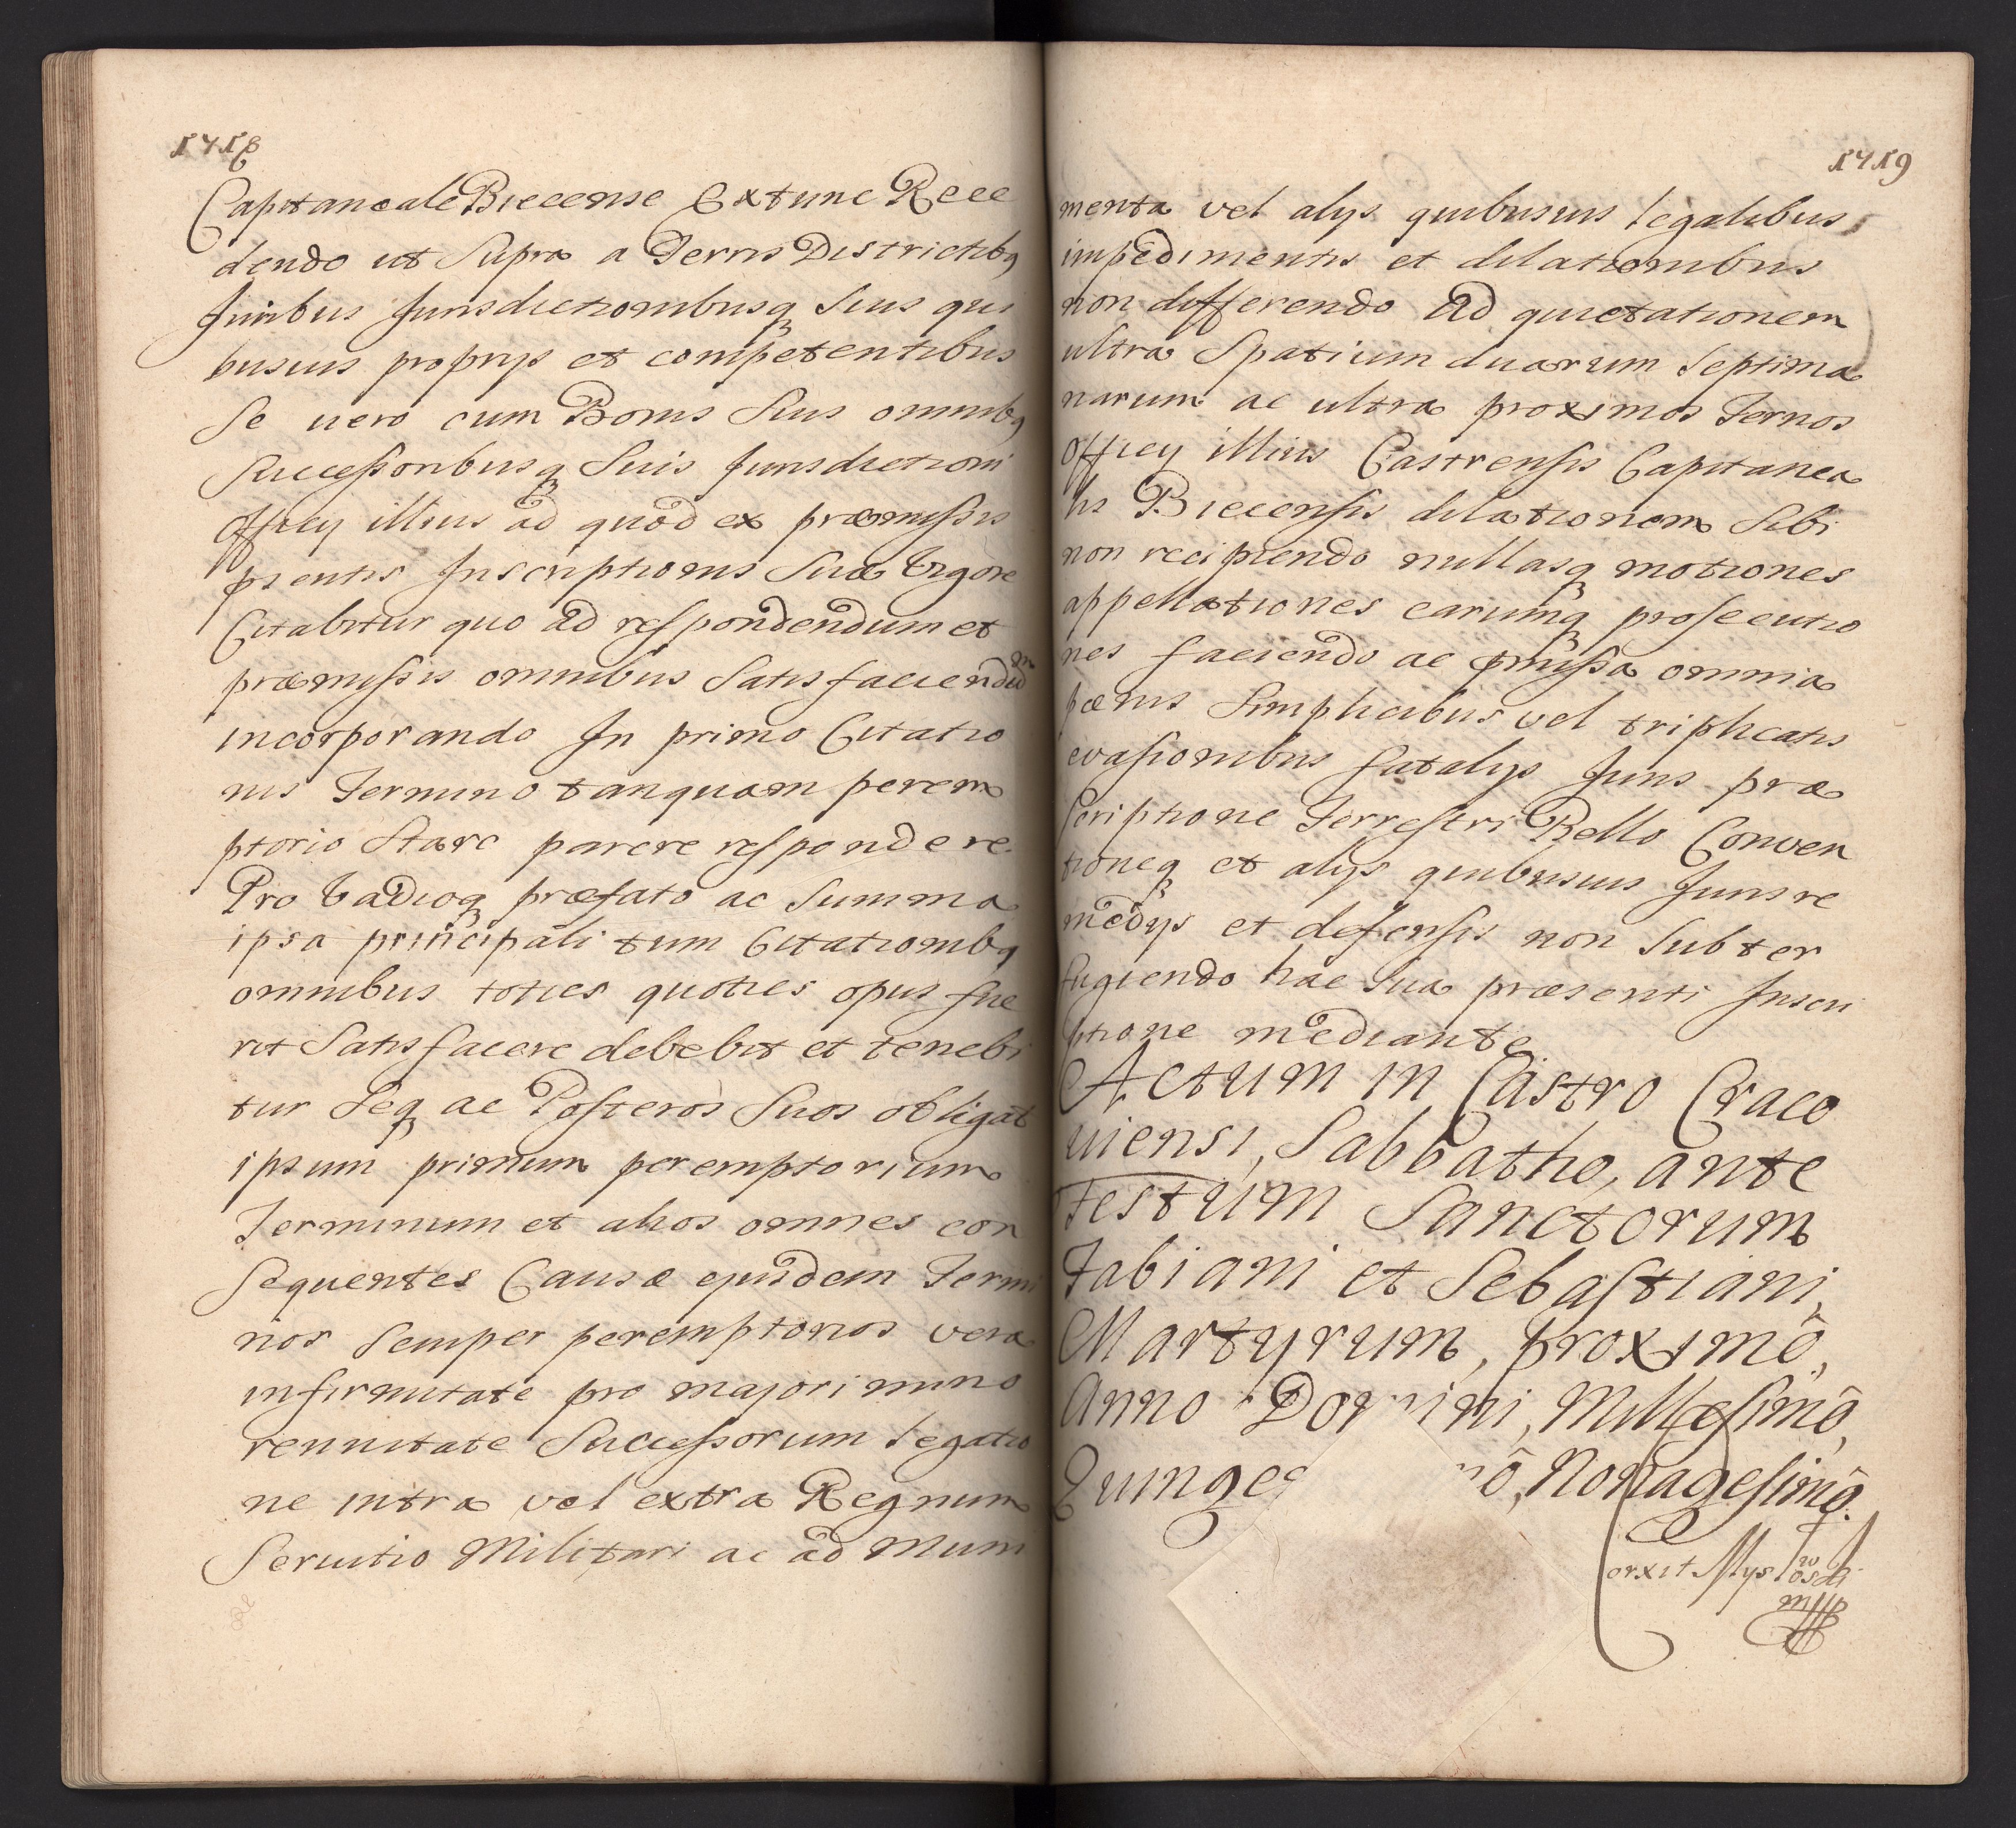 1418
Capitaneale Biecense Extunc Rece
dendo ut Supra a Terris Districtibq
Juribus Jurisdictionibusq Suis qui
busuis proprijs et competentibus
Se uero cum Bonis Suis omnibq
Successoribusq Suis Jurisdictioni
Officij illius ad quod ex præmissis
pŕentis Inscriptionis Suæ Vigore
Citabitur quo ad respondendum et
præmissis omnibus Satisfaciendum
incorporando In primo Citatio
nis Termino tanquam perem
ptorio Stare parere respondere.
Pro Vadioq præfato ac Summa
ipsa principali tum Citationibq
omnibus toties quoties opus fue
rit Satisfacere debebit et tenebi
tur Seq ac Posteros Suos obligat
ipsum primum peremptorium
Terminum et alios omnes con
Sequentes Causæ ejusdem Termi
nos Semper peremptorios vera
infirmitate pro majori mino
rennitate Successorum legatio
ne intra vel extra Regnum
Seruitio Militari ac ad Muni
1419
menta vel alijs quibusuis legalibus
impedimentis et dilationibus
non differendo Ad quietationem
ultra Spatium duarum Septima
narum ac ultra proximos Ternos
Officij illius Castrensis Capitanea
lis Biecensis dilationem Sibi
non recipiendo nullasq motiones
appellationes earumq prosecutio
nes faciendo ac pmissa omnia
pænis Simplicibus vel triplicatis
evasionibus fatalijs Juris præ
scriptione Terrestri Bello Conven
tioneq et alijs quibusuis Juris re
medijs et defensis non Subter
fugiendo hac Sua præsenti Inscri
ptione mediante
Actum in Castro Craco
uiensi, Sabbatho, ante
Festum Sanctorum
Fabiani et Sebastiani,
Martyrum, proximô,
Anno Domini, Millesimô,
Quinge mô, Nonagesimô.